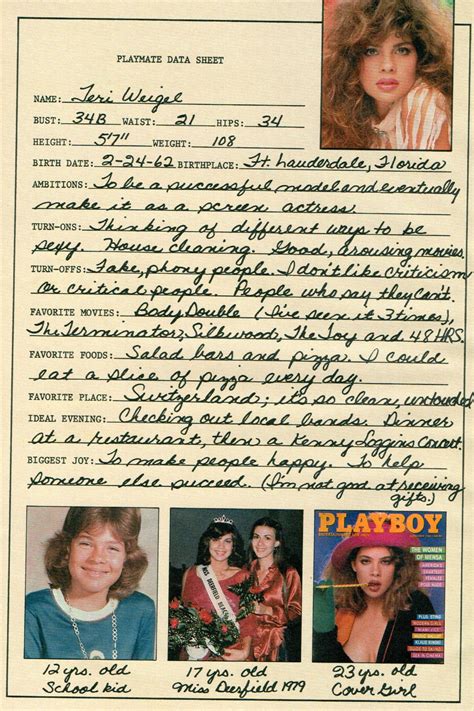 PLAYMATE DATA SHEET
NAME: Teri Weigel
BUST: 34B WAIST: 21 HIPS: 34
HEIGHT: 5'7" WEIGHT: 108
BIRTH DATE: 2-24-62 BIRTHPLACE: Ft. Lauderdale, Florida
AMBITIONS: To be a successful model and eventually
make it as a screen actress.
TURN-ONS: Thinking of different ways to be
sexy. House cleaning. Good, arousing movies.
TURN-OFFS: Fake, phony people. I don't like criticism
or critical people. People who say they can't.
FAVORITE MOVIES: Body Double (I've seen it 3 times),
The Terminator, Silkwood, The Toy and 48 HRS.
FAVORITE FOODS: Salad bars and pizza. I could
eat a slice of pizza every day.
FAVORITE PLACE: Switzerland; it's so clean, untouched.
IDEAL EVENING: Checking out local bands. Dinner
at a restaurant, then a Kenny Loggins Concert.
BIGGEST JOY: To make people happy. To help
someone else succeed. (I'm not good at receiving
gifts.)
MISS DEERFIELD BEACH
PLAYBOY
THE WOMEN
OF MENSA
AMERICA'S
SMARTEST
FEMALES
POSE NUDE
PLUS: STING
12 yrs. old
School kid
17 yrs. old
Miss Deerfield 1979
23 yrs. old
Cover Girl